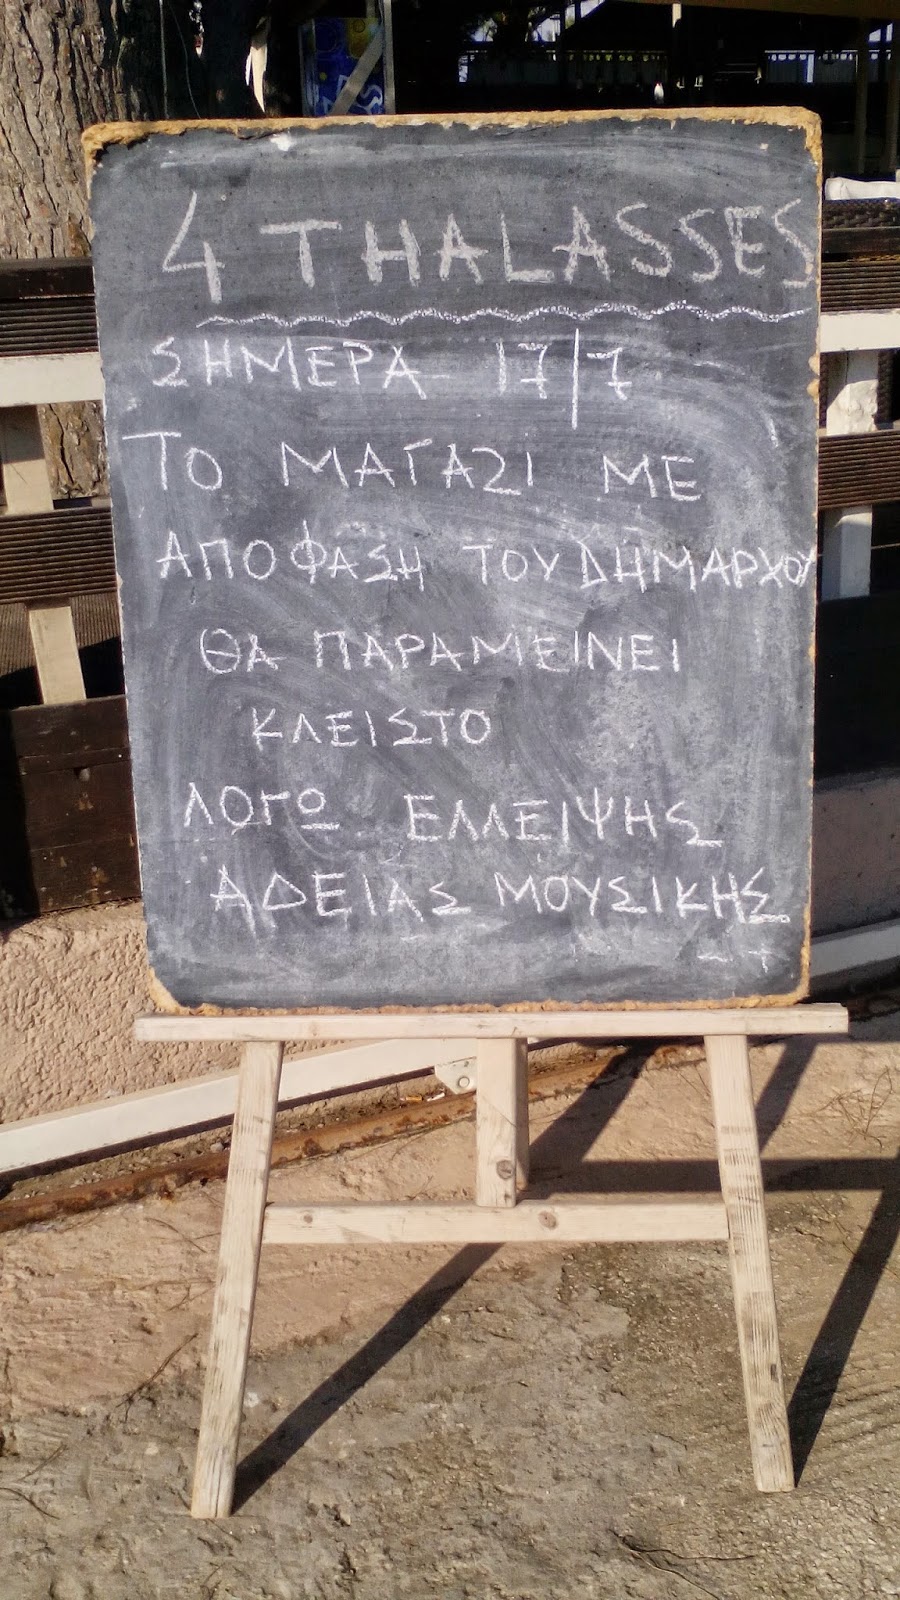 4 THALASSES
ΣΗΜΕΡΑ 17/7
ΤΟ ΜΑΓΑΖΙ ΜΕ
ΑΠΟΦΑΣΗ ΤΟΥ ΔΗΜΑΡΧΟΥ
ΘΑ ΠΑΡΑΜΕΙΝΕΙ
ΚΛΕΙΣΤΟ
ΛΟΓΩ ΕΛΛΕΙΨΗΣ
ΑΔΕΙΑΣ ΜΟΥΣΙΚΗΣ